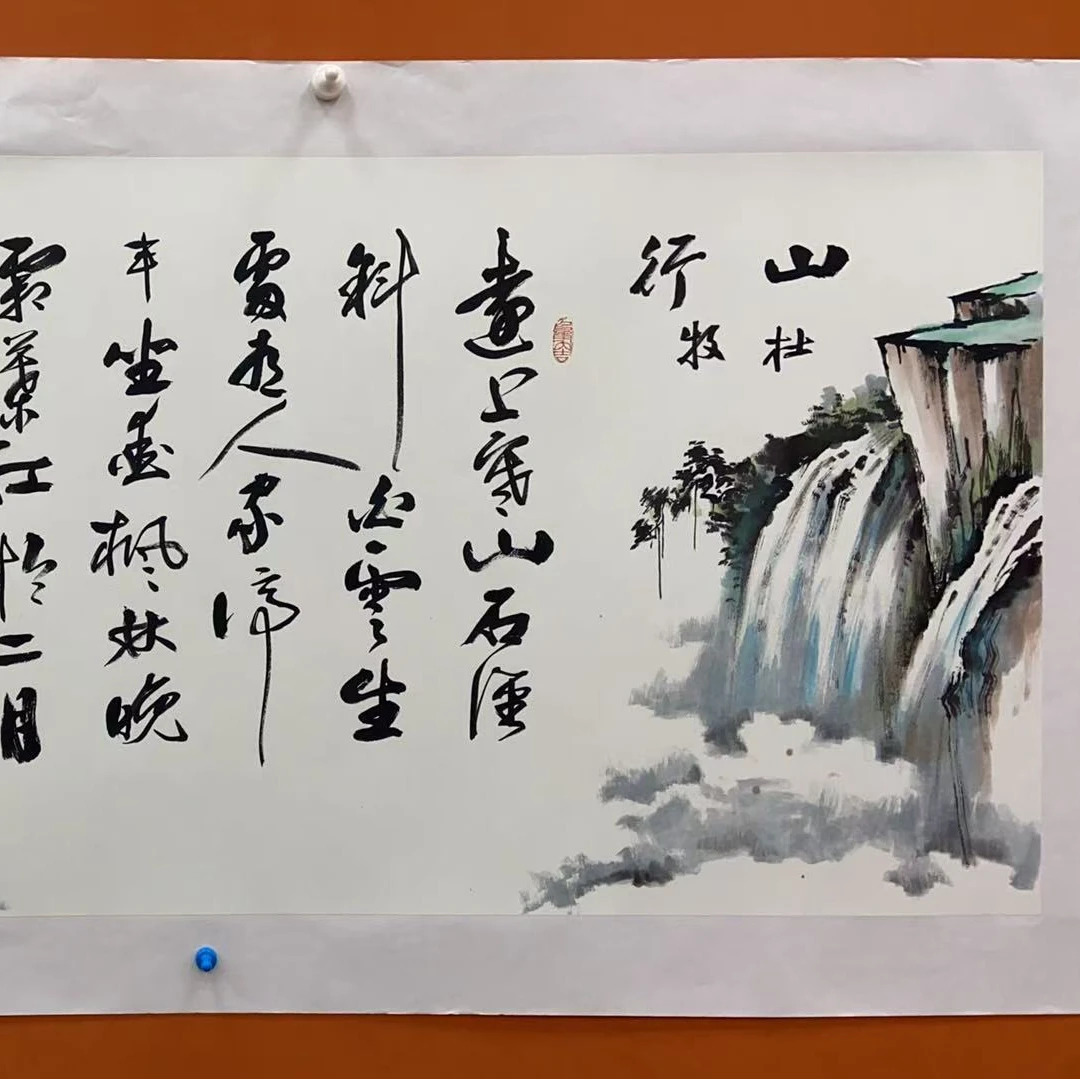 山行
杜牧
遠上寒山石徑
斜白雲生
處有人家停
车坐愛楓林晚
霜葉红於二月